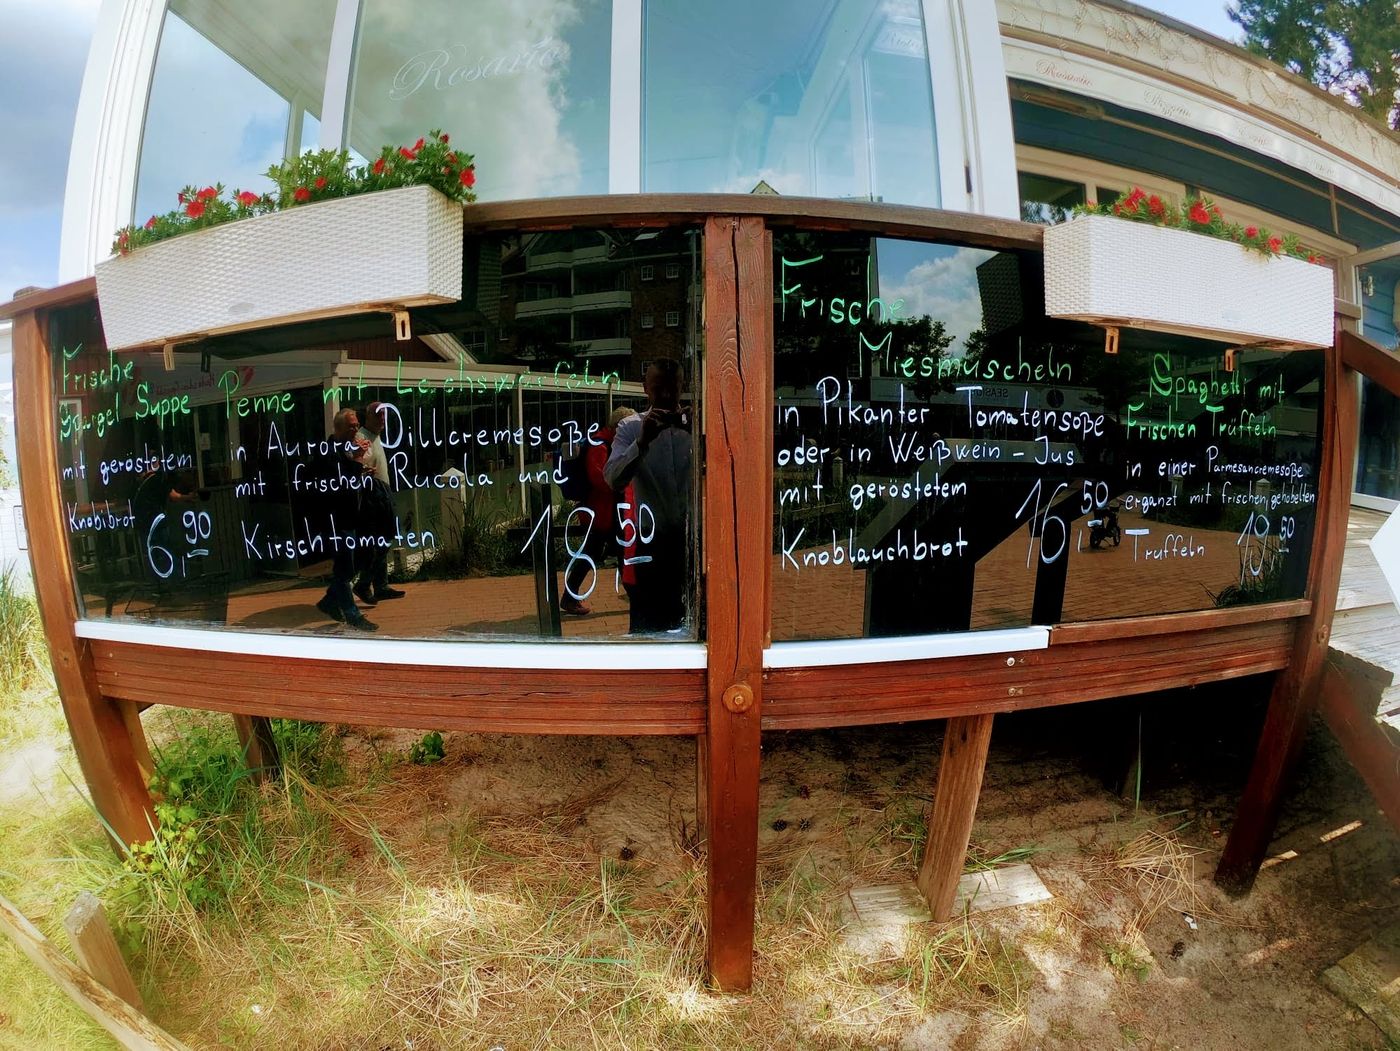 Rosario
Rosario
Frische
Spargel Suppe
mit geröstetem
Knobibrot
6,90
Penne mit Lachswürfeln
in Aurora Dillcremesoße
mit frischen Rucola und
Kirschtomaten
18,50
Frische
Miesmuscheln
in Pikanter Tomatensoße
oder in Weißwein - Jus
mit geröstetem
Knoblauchbrot
16,50
Spaghetti mit
Frischen Trüffeln
in einer Parmesancremesoße
ergänzt mit frischen, gehobelten
Trüffeln
19,50